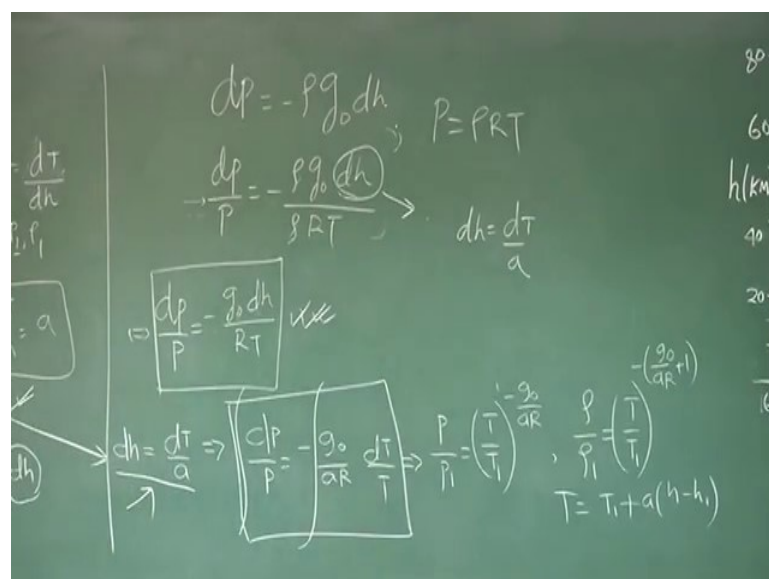 dp = -ρg₀dh
; P = ρRT
→ dp/P = - ρg₀dh/ρRT
dh = dT/a
⇒ dp/P = - g₀dh/RT
dh = dT/a ⇒ dP/P = - g₀/aR dT/T ⇒ P/P₁ = (T/T₁)^(-g₀/aR) , ρ/ρ₁ = (T/T₁)^-(g₀/aR+1)
T = T₁ + a(h-h₁)
= dT/dh
= a
dh
80
60
h(KM
40
20